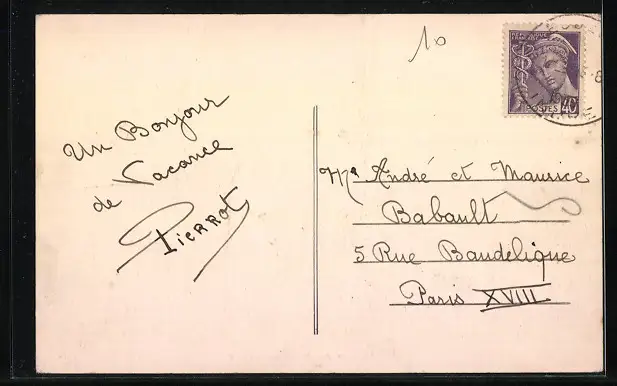 10
RÉPUBLIQUE
FRANÇAISE
POSTES 40
Un Bonjour
de Vacance
Pierrot
Mrs André et Maurice
Babault
5 Rue Baudelique
Paris XVIII